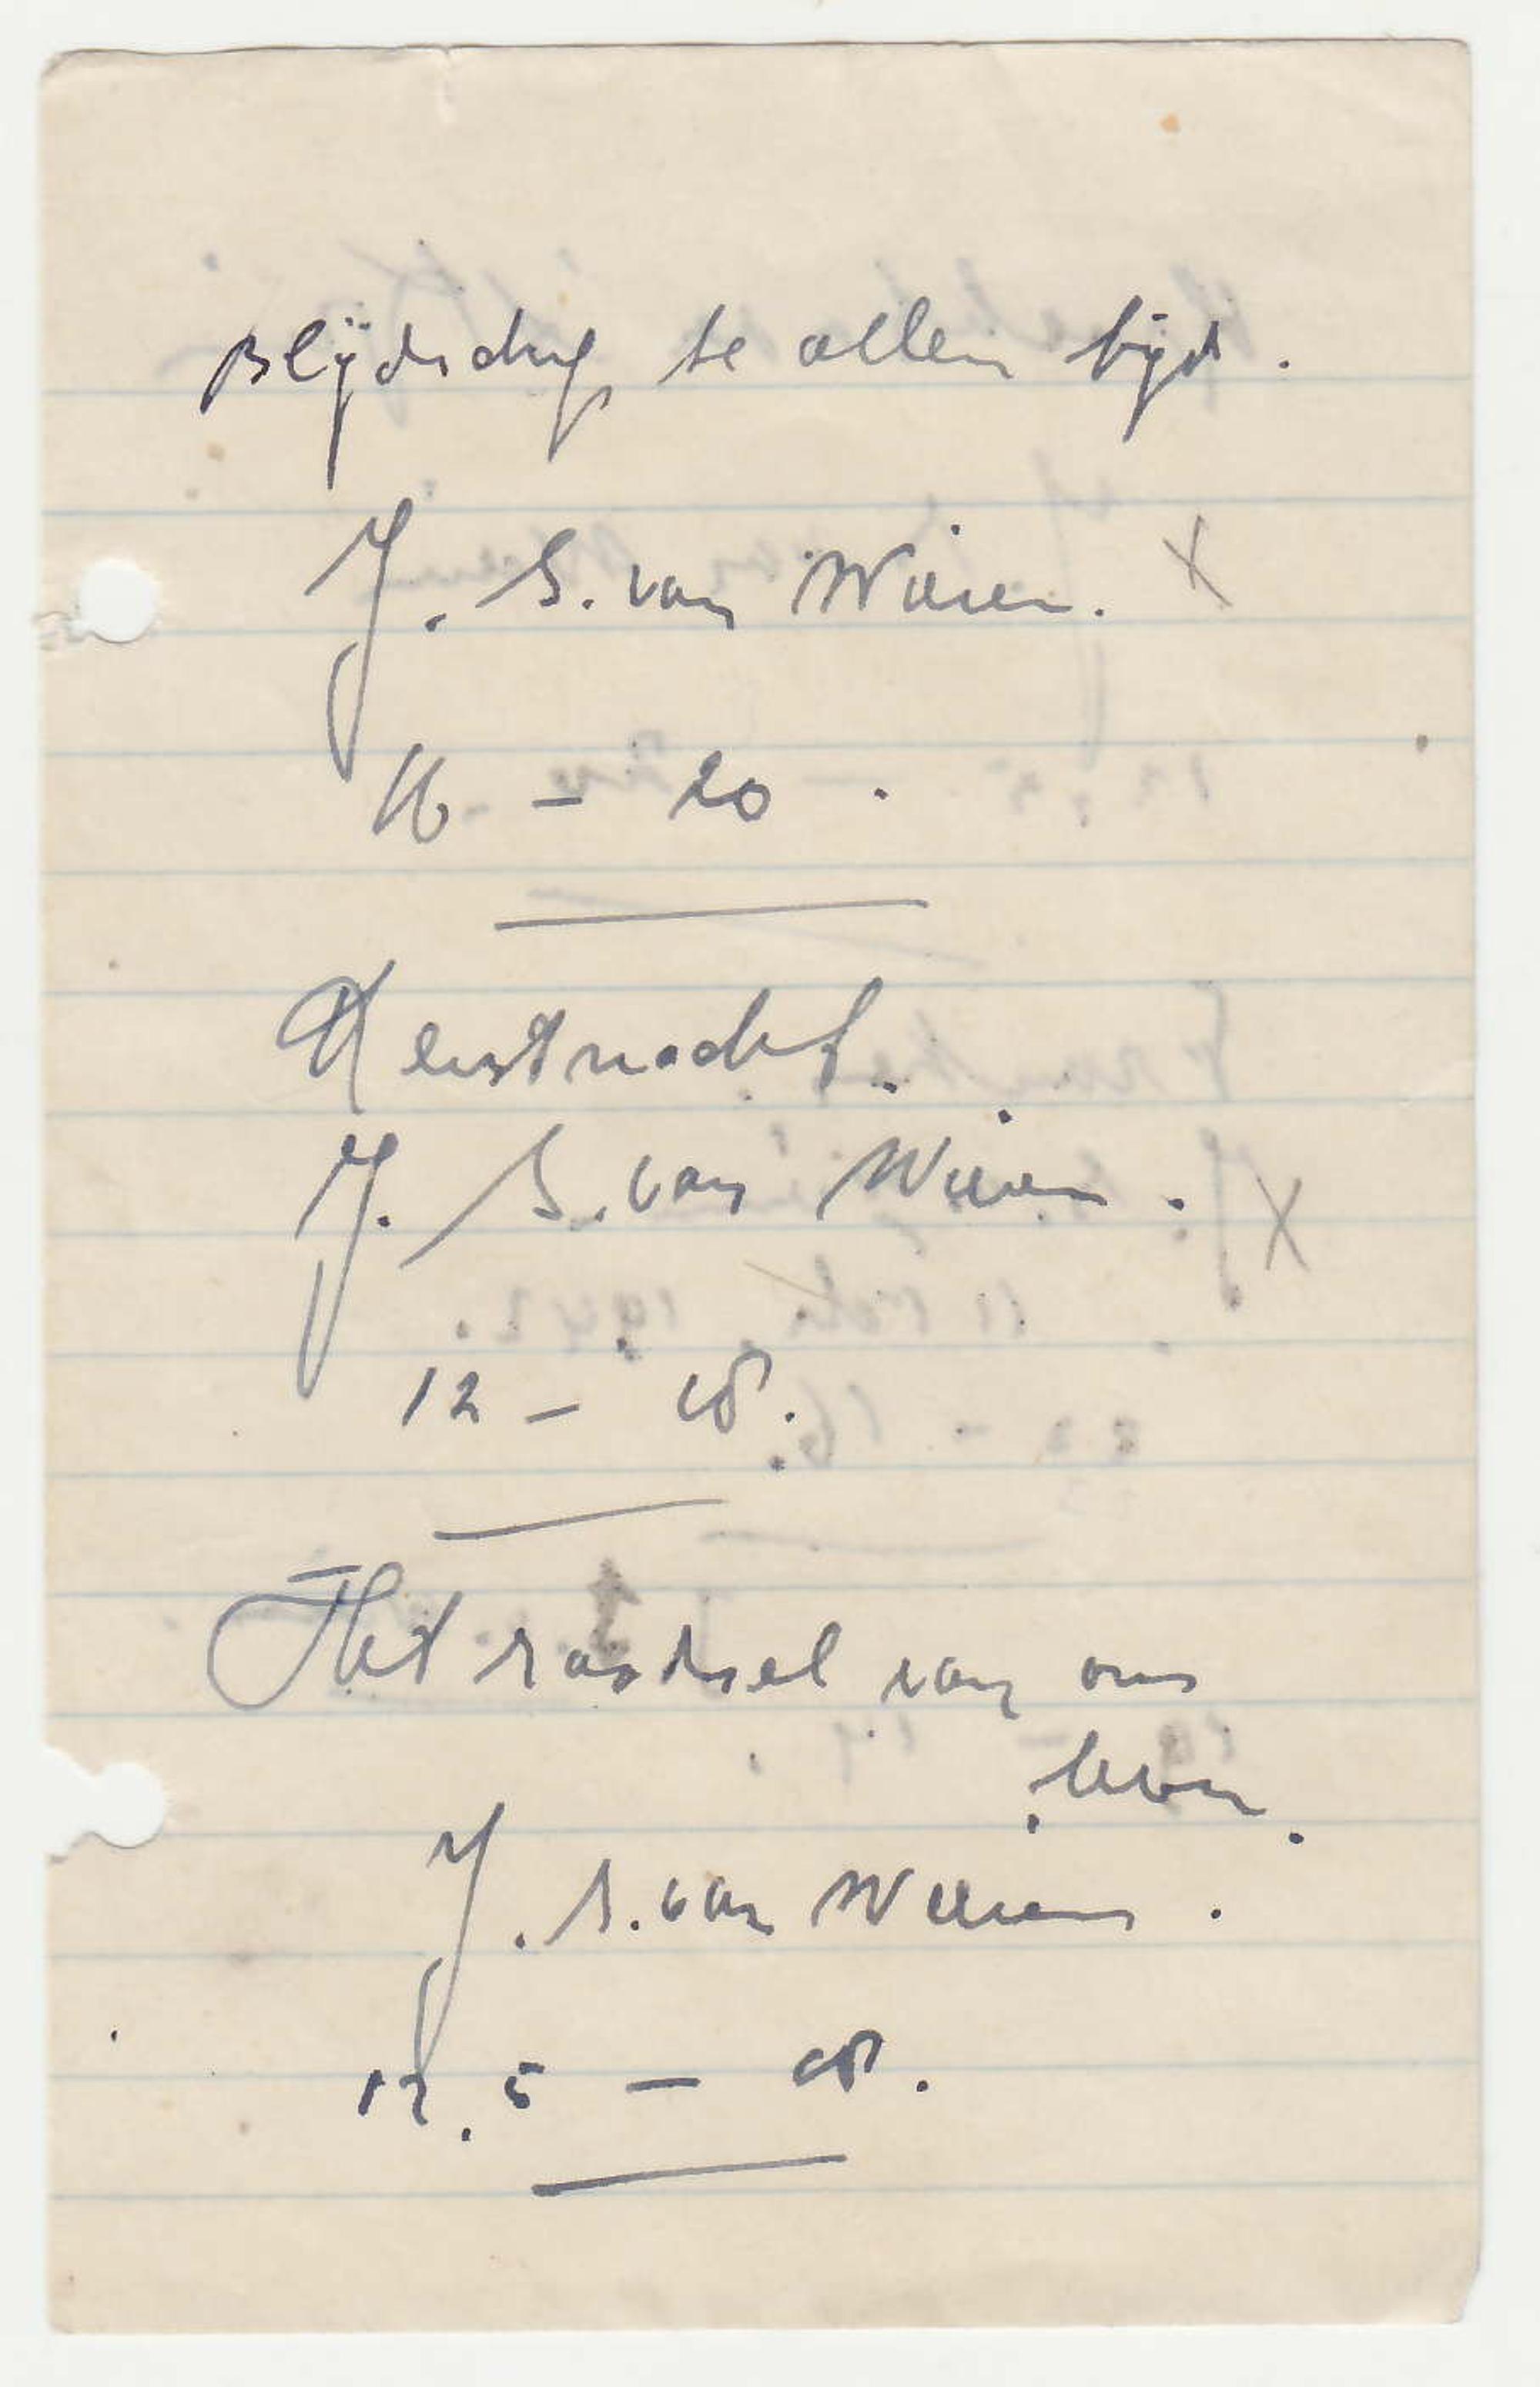 Blijdschap te allen tijd.
J. S. van Wieren. X
16 - 20.
Kerstnacht.
J. S. van Wieren. X
12 - 18.
Het raadsel van ons
leven.
J. S. van Wieren.
12.5 - 18.